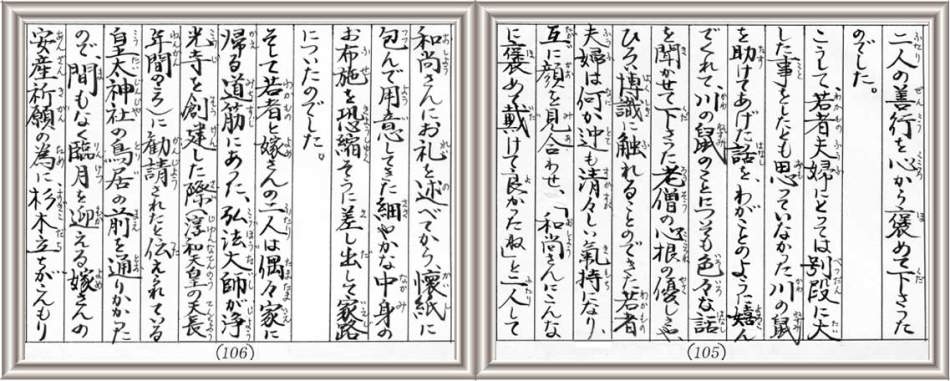 二人の善行を心から褒めて下さった
のでした。
こうして若者夫婦にとっては別段に大
した事をしたとも思っていなかった川の鼠
を助けてあげた話を、わがことのように嬉ん
でくれて川の鼠のことについても色々な話
を聞かせて下さった老僧の心根の優しさや、
ひろい博識に触れることのできた若者
夫婦は何か迚も清々しい氣持になり、
互に顔を見合わせ、「和尚さんにこんな
に褒めて戴けて良かったね」と二人して
(105)
和尚さんにお礼を述べてから、懐紙に
包んで用意してきた細やかな中身の
お布施を恐縮そうに差し出して家路
についたのでした。
そして若者と嫁さんの二人は偶々家に
帰る道筋にあった、弘法大師が浄
光寺を創建した際(淳和天皇の天長
年間のころ)に勧請されたと伝えられている
皇太神社の鳥居の前を通りかかった
ので、間もなく臨月を迎える嫁さんの
安産祈願の為に杉木立がこんもり
(106)